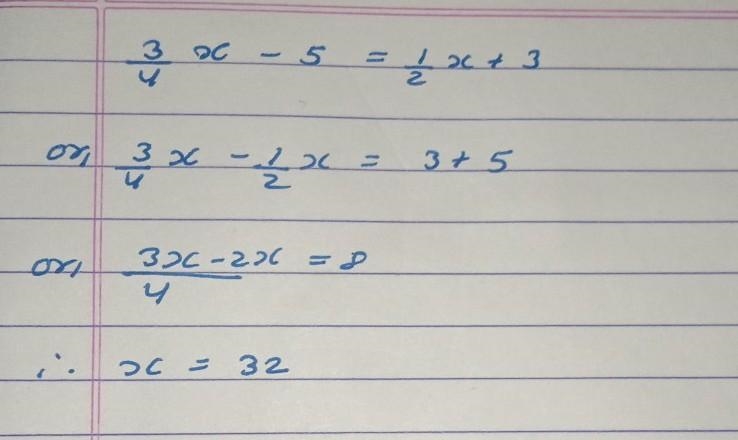 3/4 x - 5 = 1/2 x + 3
or, 3/4 x - 1/2 x = 3 + 5
or, 3x - 2x / 4 = 8
∴ x = 32